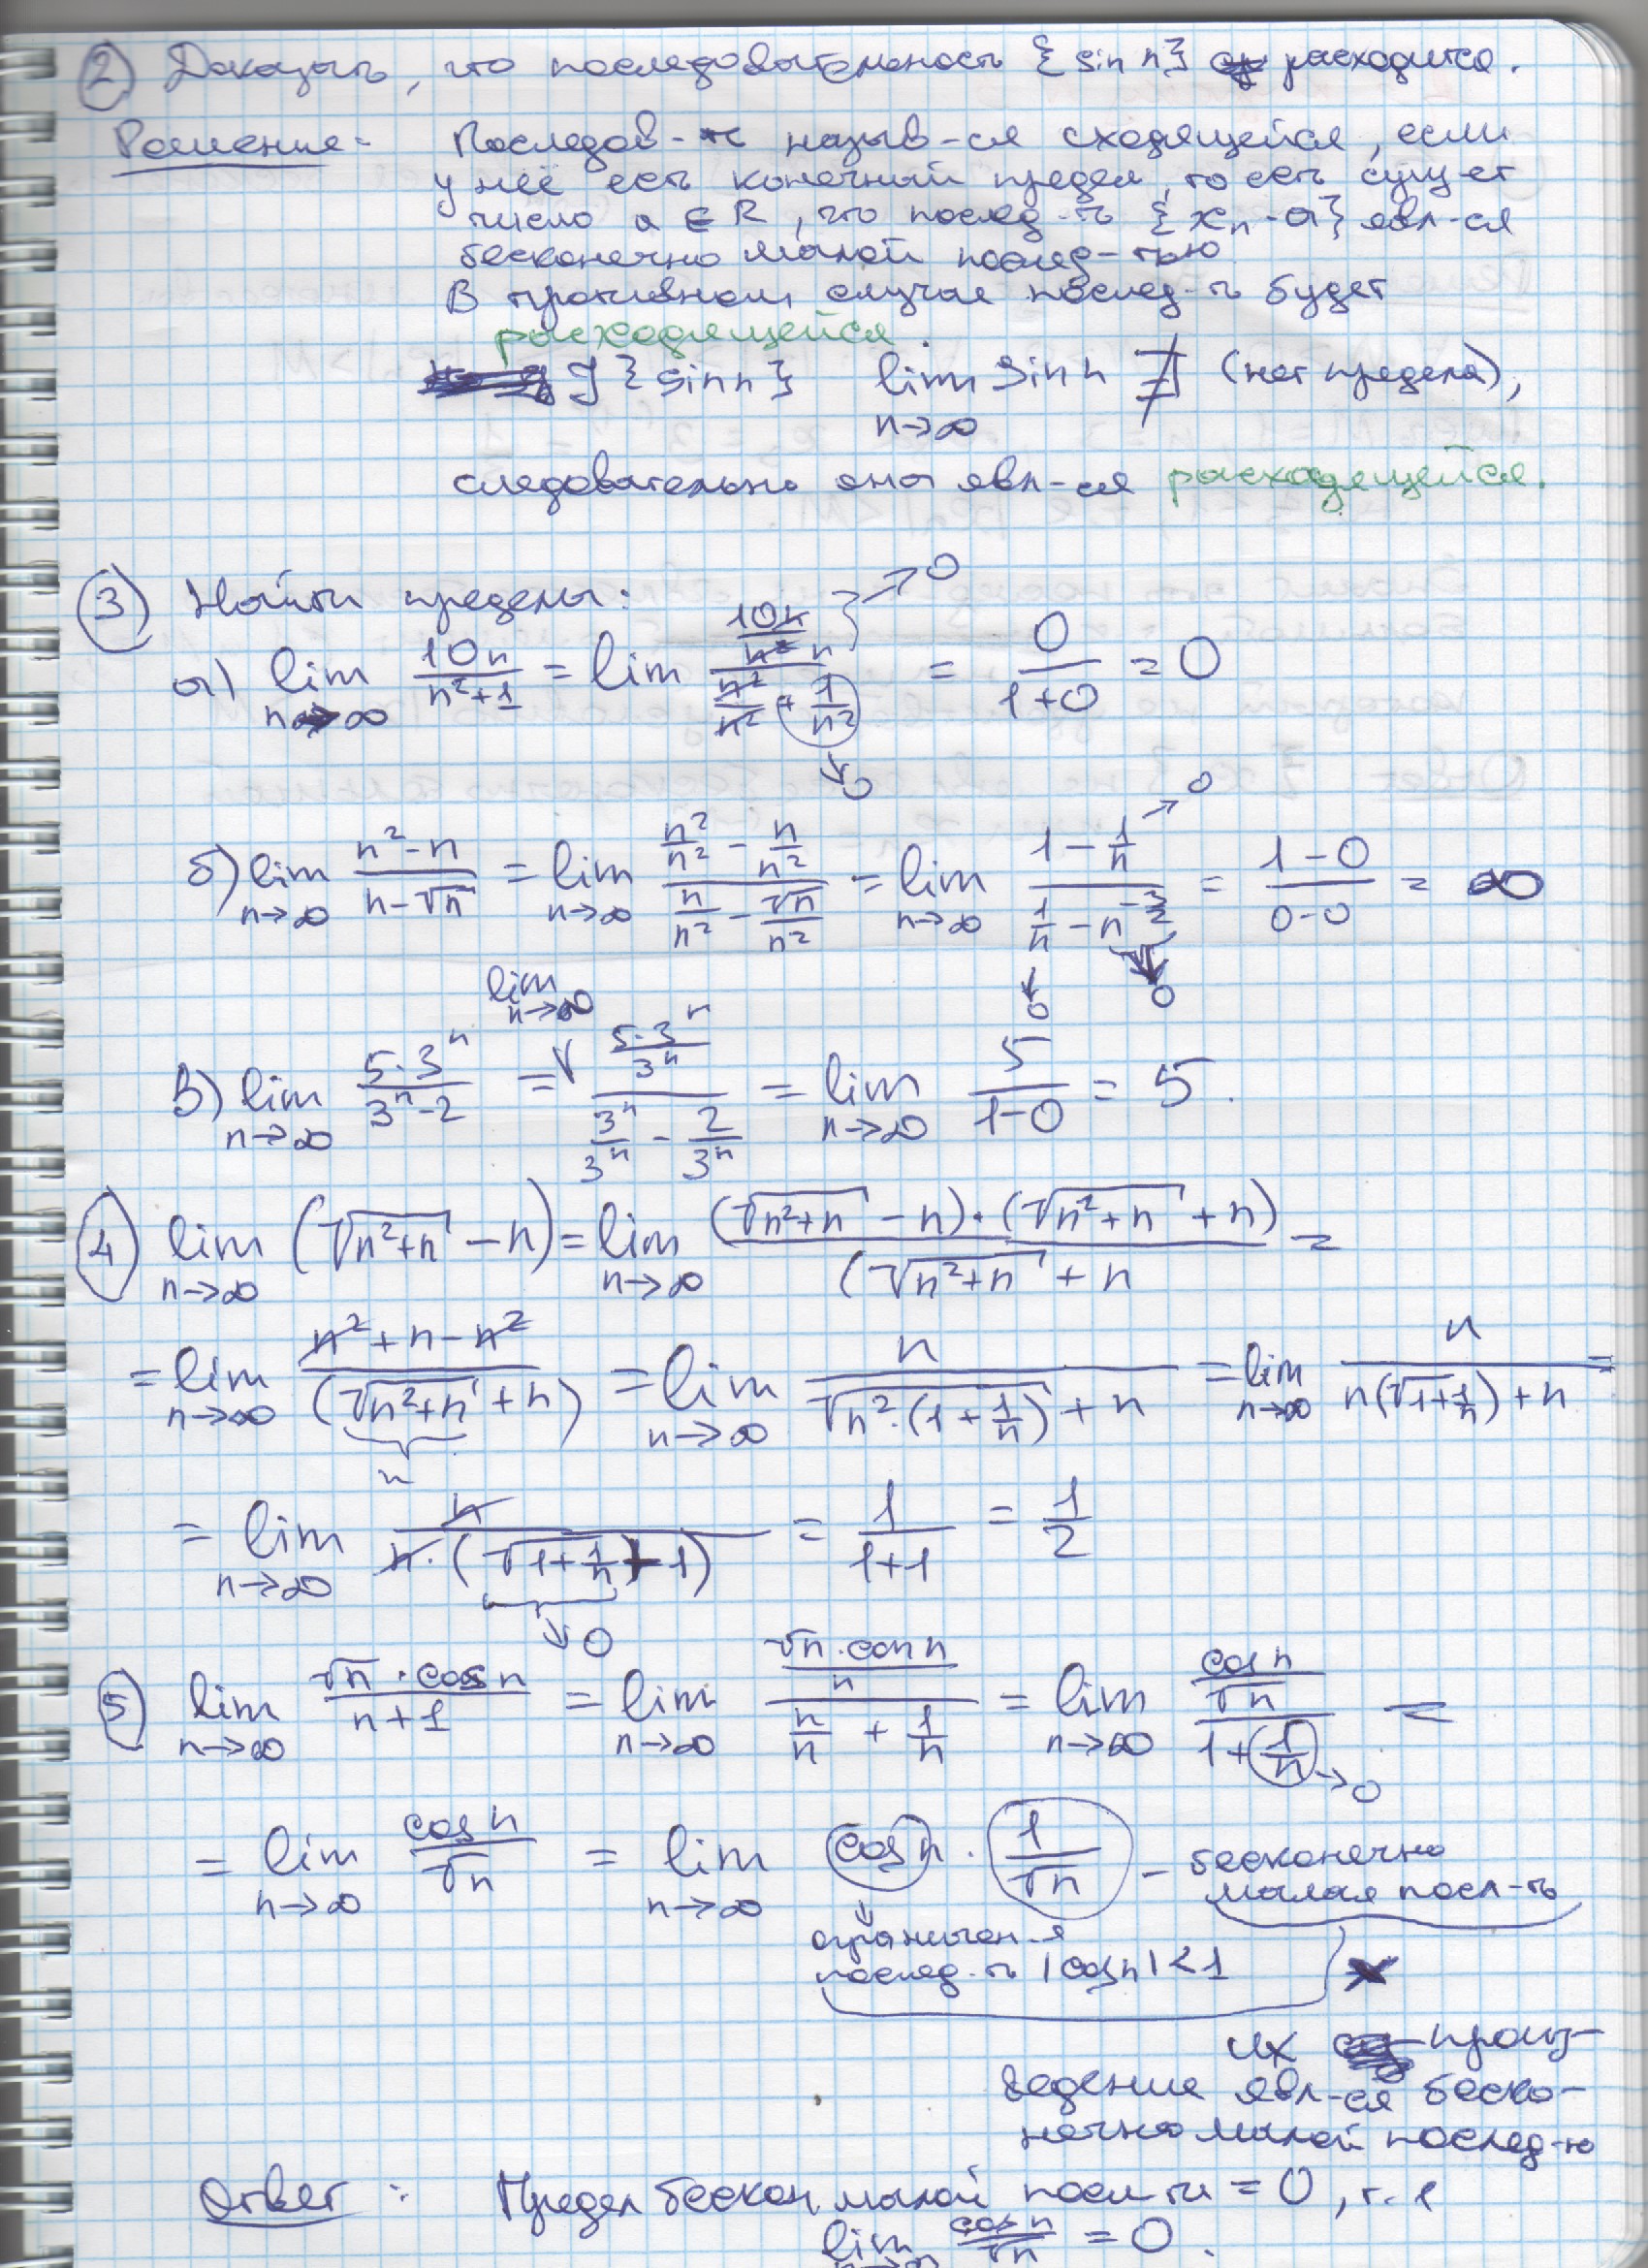 2) Доказать, что последовательность {sin n} расходится.
Решение: Последов-ть назыв-ся сходящейся, если
у неё есть конечный предел, то есть сущ-ет
число a ∈ R, что послед-ть {xₙ - a} явл-ся
бесконечно малой послед-тью
В противном случае послед-ть будет
расходящейся.
] {sin n} lim n→∞ sin n ∄ (нет предела),
следовательно она явл-ся расходящейся.
3) Найти пределы:
а) lim n→∞ 10n/(n²+1) = lim (10n/n²)/(n²/n² + 1/n²) = 0/(1+0) = 0
→0
→0
б) lim n→∞ (n²-n)/(n-√n) = lim n→∞ (n²/n² - n/n²)/(n/n² - √n/n²) = lim n→∞ (1 - 1/n)/(1/n - n^(-3/2)) = (1-0)/(0-0) = ∞
→0
→0 →0
в) lim n→∞ 5·3ⁿ/(3ⁿ-2) = lim n→∞ (5·3ⁿ/3ⁿ)/(3ⁿ/3ⁿ - 2/3ⁿ) = lim n→∞ 5/(1-0) = 5.
4) lim n→∞ (√(n²+n) - n) = lim n→∞ (√(n²+n) - n)·(√(n²+n) + n)/(√(n²+n) + n =
= lim n→∞ (n²+n-n²)/(√(n²+n) + n) = lim n→∞ n/(√(n²·(1+1/n)) + n) = lim n→∞ n/(n(√(1+1/n)) + n) =
n
= lim n→∞ n/(n·(√(1+1/n) + 1)) = 1/(1+1) = 1/2
→0
5) lim n→∞ √n·cos n/(n+1) = lim n→∞ (√n·cos n/n)/(n/n + 1/n) = lim n→∞ (cos n/√n)/(1+1/n) =
→0
= lim n→∞ cos n/√n = lim n→∞ cos n · 1/√n - бесконечно
малая посл-ть
ограничен-я
послед-ть |cos n| < 1
их произ-
ведение явл-ся беско-
нечно малой послед-ю
Ответ: Предел бескон малой посл ти = 0, т.е
lim n→∞ cos n/√n = 0.